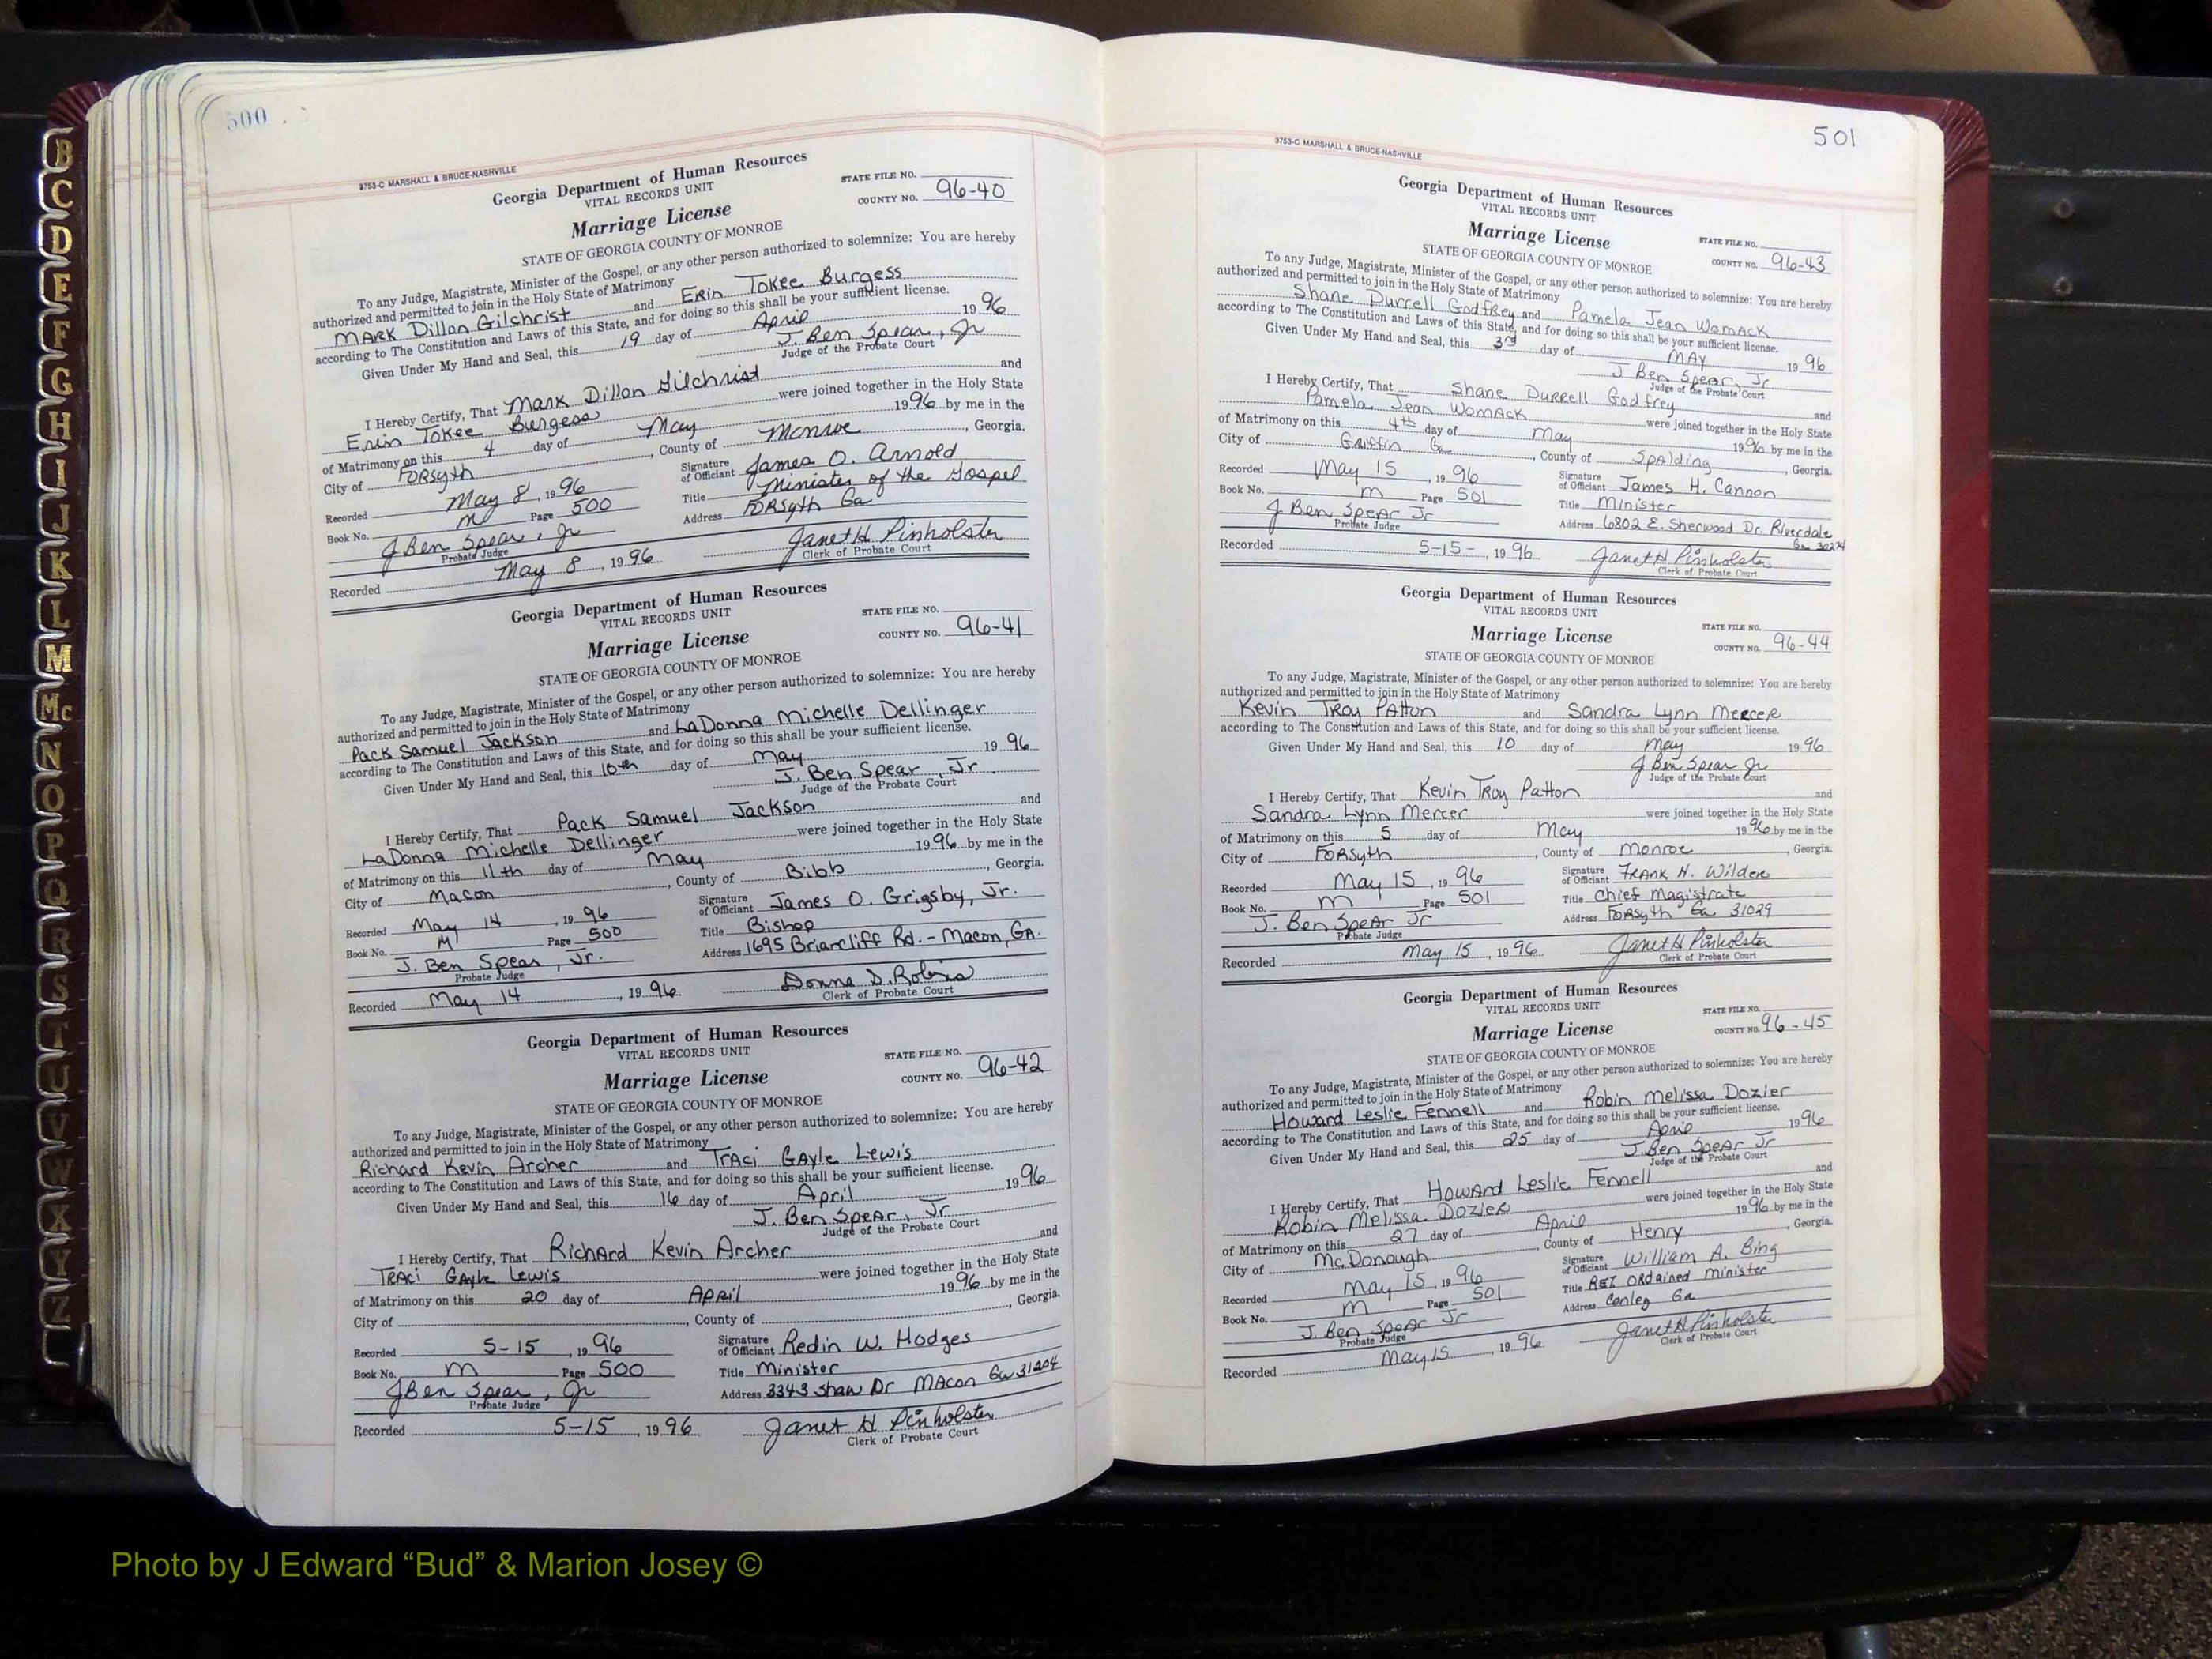 500
3753-C MARSHALL & BRUCE-NASHVILLE
Georgia Department of Human Resources
VITAL RECORDS UNIT
STATE FILE NO.
Marriage License
COUNTY NO. 96-40
STATE OF GEORGIA COUNTY OF MONROE
To any Judge, Magistrate, Minister of the Gospel, or any other person authorized to solemnize: You are hereby
authorized and permitted to join in the Holy State of Matrimony
MARK Dillon Gilchrist and ERIN Tokee Burgess
according to The Constitution and Laws of this State, and for doing so this shall be your sufficient license.
Given Under My Hand and Seal, this 19 day of April 1996
J. Ben Spear, Jr
Judge of the Probate Court
I Hereby Certify, That Mark Dillon Gilchrist and
Erin Tokee Burgess were joined together in the Holy State
of Matrimony on this 4 day of May 1996 by me in the
City of Forsyth, County of Monroe, Georgia.
Recorded May 8, 1996
Signature of Officiant James O. Arnold
Book No. M Page 500
Title Minister of the Gospel
J Ben Spear, Jr
Probate Judge
Address Forsyth Ga
Recorded May 8, 1996
Janet H Pinholster
Clerk of Probate Court
Georgia Department of Human Resources
VITAL RECORDS UNIT
STATE FILE NO.
Marriage License
COUNTY NO. 96-41
STATE OF GEORGIA COUNTY OF MONROE
To any Judge, Magistrate, Minister of the Gospel, or any other person authorized to solemnize: You are hereby
authorized and permitted to join in the Holy State of Matrimony
Pack Samuel Jackson and LaDonna Michelle Dellinger
according to The Constitution and Laws of this State, and for doing so this shall be your sufficient license.
Given Under My Hand and Seal, this 10th day of May 1996
J. Ben Spear, Jr.
Judge of the Probate Court
I Hereby Certify, That Pack Samuel Jackson and
LaDonna Michelle Dellinger were joined together in the Holy State
of Matrimony on this 11th day of May 1996 by me in the
City of Macon, County of Bibb, Georgia.
Recorded May 14, 1996
Signature of Officiant James O. Grigsby, Jr.
Book No. M Page 500
Title Bishop
J. Ben Spear, Jr.
Probate Judge
Address 1695 Briarcliff Rd. - Macon, GA.
Recorded May 14, 1996
Donna D. Robins
Clerk of Probate Court
Georgia Department of Human Resources
VITAL RECORDS UNIT
STATE FILE NO.
Marriage License
COUNTY NO. 96-42
STATE OF GEORGIA COUNTY OF MONROE
To any Judge, Magistrate, Minister of the Gospel, or any other person authorized to solemnize: You are hereby
authorized and permitted to join in the Holy State of Matrimony
Richard Kevin Archer and Traci Gayle Lewis
according to The Constitution and Laws of this State, and for doing so this shall be your sufficient license.
Given Under My Hand and Seal, this 16 day of April 1996
J. Ben Spear, Jr
Judge of the Probate Court
I Hereby Certify, That Richard Kevin Archer and
Traci Gayle Lewis were joined together in the Holy State
of Matrimony on this 20 day of April 1996 by me in the
City of , County of , Georgia.
Recorded 5-15, 1996
Signature of Officiant Redin W. Hodges
Book No. M Page 500
Title Minister
J Ben Spear, Jr
Probate Judge
Address 3343 Shaw Dr Macon Ga 31204
Recorded 5-15, 1996
Janet H Pinholster
Clerk of Probate Court
501
3753-C MARSHALL & BRUCE-NASHVILLE
Georgia Department of Human Resources
VITAL RECORDS UNIT
Marriage License
STATE FILE NO.
STATE OF GEORGIA COUNTY OF MONROE
COUNTY NO. 96-43
To any Judge, Magistrate, Minister of the Gospel, or any other person authorized to solemnize: You are hereby
authorized and permitted to join in the Holy State of Matrimony
Shane Durrell Godfrey and Pamela Jean Womack
according to The Constitution and Laws of this State, and for doing so this shall be your sufficient license.
Given Under My Hand and Seal, this 3rd day of May 1996
J Ben Spear, Jr
Judge of the Probate Court
I Hereby Certify, That Shane Durrell Godfrey and
Pamela Jean Womack were joined together in the Holy State
of Matrimony on this 4th day of May 1996 by me in the
City of Griffin Ga, County of Spalding, Georgia.
Recorded May 15, 1996
Signature of Officiant James H. Cannon
Book No. M Page 501
Title Minister
J Ben Spear Jr
Probate Judge
Address 6802 E. Sherwood Dr. Riverdale
Ga 30274
Recorded 5-15-, 1996
Janet H Pinholster
Clerk of Probate Court
Georgia Department of Human Resources
VITAL RECORDS UNIT
STATE FILE NO.
Marriage License
COUNTY NO. 96-44
STATE OF GEORGIA COUNTY OF MONROE
To any Judge, Magistrate, Minister of the Gospel, or any other person authorized to solemnize: You are hereby
authorized and permitted to join in the Holy State of Matrimony
Kevin Troy Patton and Sandra Lynn Mercer
according to The Constitution and Laws of this State, and for doing so this shall be your sufficient license.
Given Under My Hand and Seal, this 10 day of May 1996
J Ben Spear Jr
Judge of the Probate Court
I Hereby Certify, That Kevin Troy Patton and
Sandra Lynn Mercer were joined together in the Holy State
of Matrimony on this 5 day of May 1996 by me in the
City of Forsyth, County of Monroe, Georgia.
Recorded May 15, 1996
Signature of Officiant Frank H. Wilder
Book No. M Page 501
Title Chief Magistrate
J. Ben Spear Jr
Probate Judge
Address Forsyth Ga 31029
Recorded May 15, 1996
Janet H Pinholster
Clerk of Probate Court
Georgia Department of Human Resources
VITAL RECORDS UNIT
STATE FILE NO.
Marriage License
COUNTY NO. 96-45
STATE OF GEORGIA COUNTY OF MONROE
To any Judge, Magistrate, Minister of the Gospel, or any other person authorized to solemnize: You are hereby
authorized and permitted to join in the Holy State of Matrimony
Howard Leslie Fennell and Robin Melissa Dozier
according to The Constitution and Laws of this State, and for doing so this shall be your sufficient license.
Given Under My Hand and Seal, this 25 day of April 1996
J. Ben Spear Jr
Judge of the Probate Court
I Hereby Certify, That Howard Leslie Fennell and
Robin Melissa Dozier were joined together in the Holy State
of Matrimony on this 27 day of April 1996 by me in the
City of McDonough, County of Henry, Georgia.
Recorded May 15, 1996
Signature of Officiant William A. Bing
Book No. M Page 501
Title RET Ordained minister
J. Ben Spear Jr
Probate Judge
Address Conley Ga
Recorded May 15, 1996
Janet H Pinholster
Clerk of Probate Court
B
C
D
E
F
G
H
I
J
K
L
M
Mc
N
O
P
Q
R
S
T
U
V
W
X
Y
Z
Photo by J Edward “Bud” & Marion Josey ©